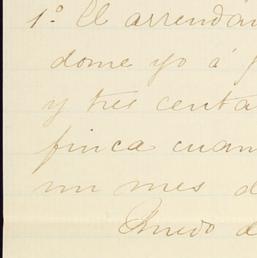 1.º El arrendán
dome yo á
y tres centa
finca cuan
un mes d
Quedo d